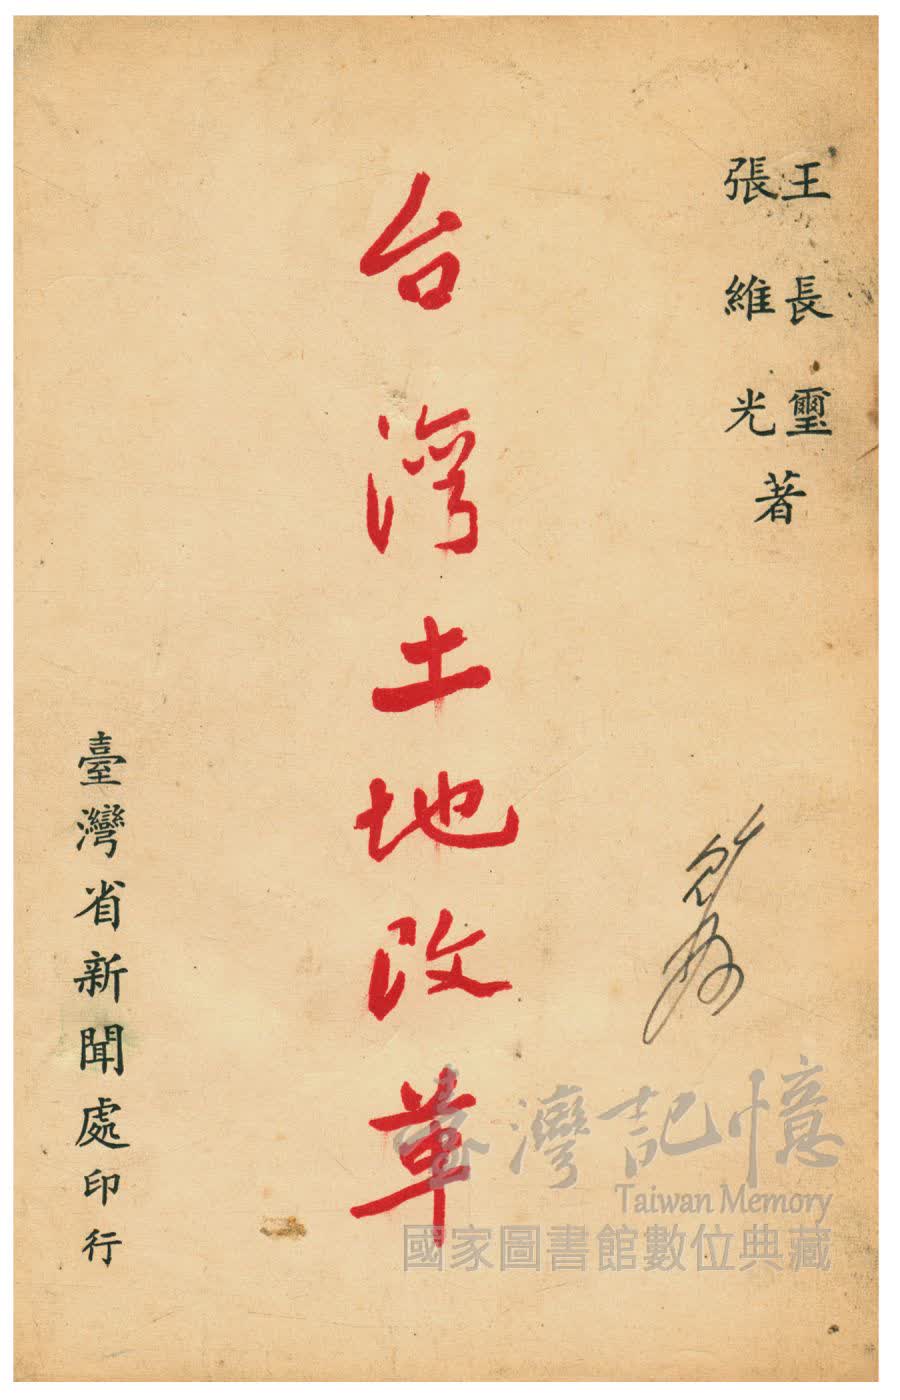 王長璽
張維光
著
台灣土地改革
臺灣省新聞處印行
臺灣記憶
Taiwan Memory
國家圖書館數位典藏